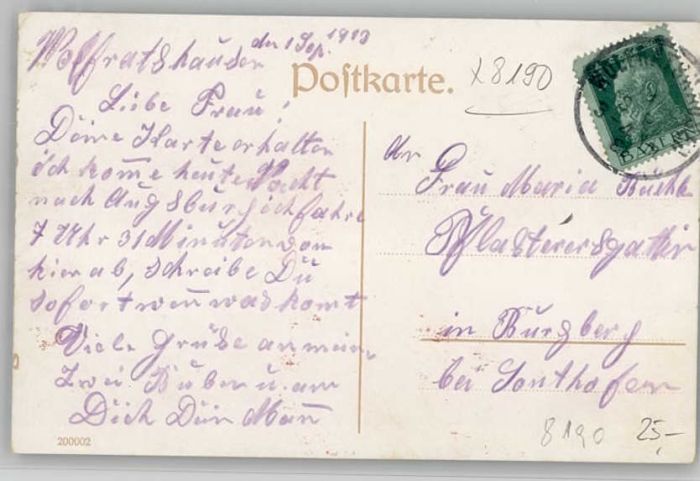 Wolfratshausen
den 1 Sep. 1913
Postkarte.
x 8190
Liebe Frau!
Deine Karte erhalten
ich kome heute Nacht
nach Augsburg ich fahre
7 Uhr 31 Minuten von
hier ab, schreibe Du
sofort wen was komt
Viele Grüße an meine
zwei Buben u. an
Dich Dein Man
200002
BAYERN
an
Frau Maria
Pflasterersgattin
in Burgberg
bei Sonthofen
8190 25,-